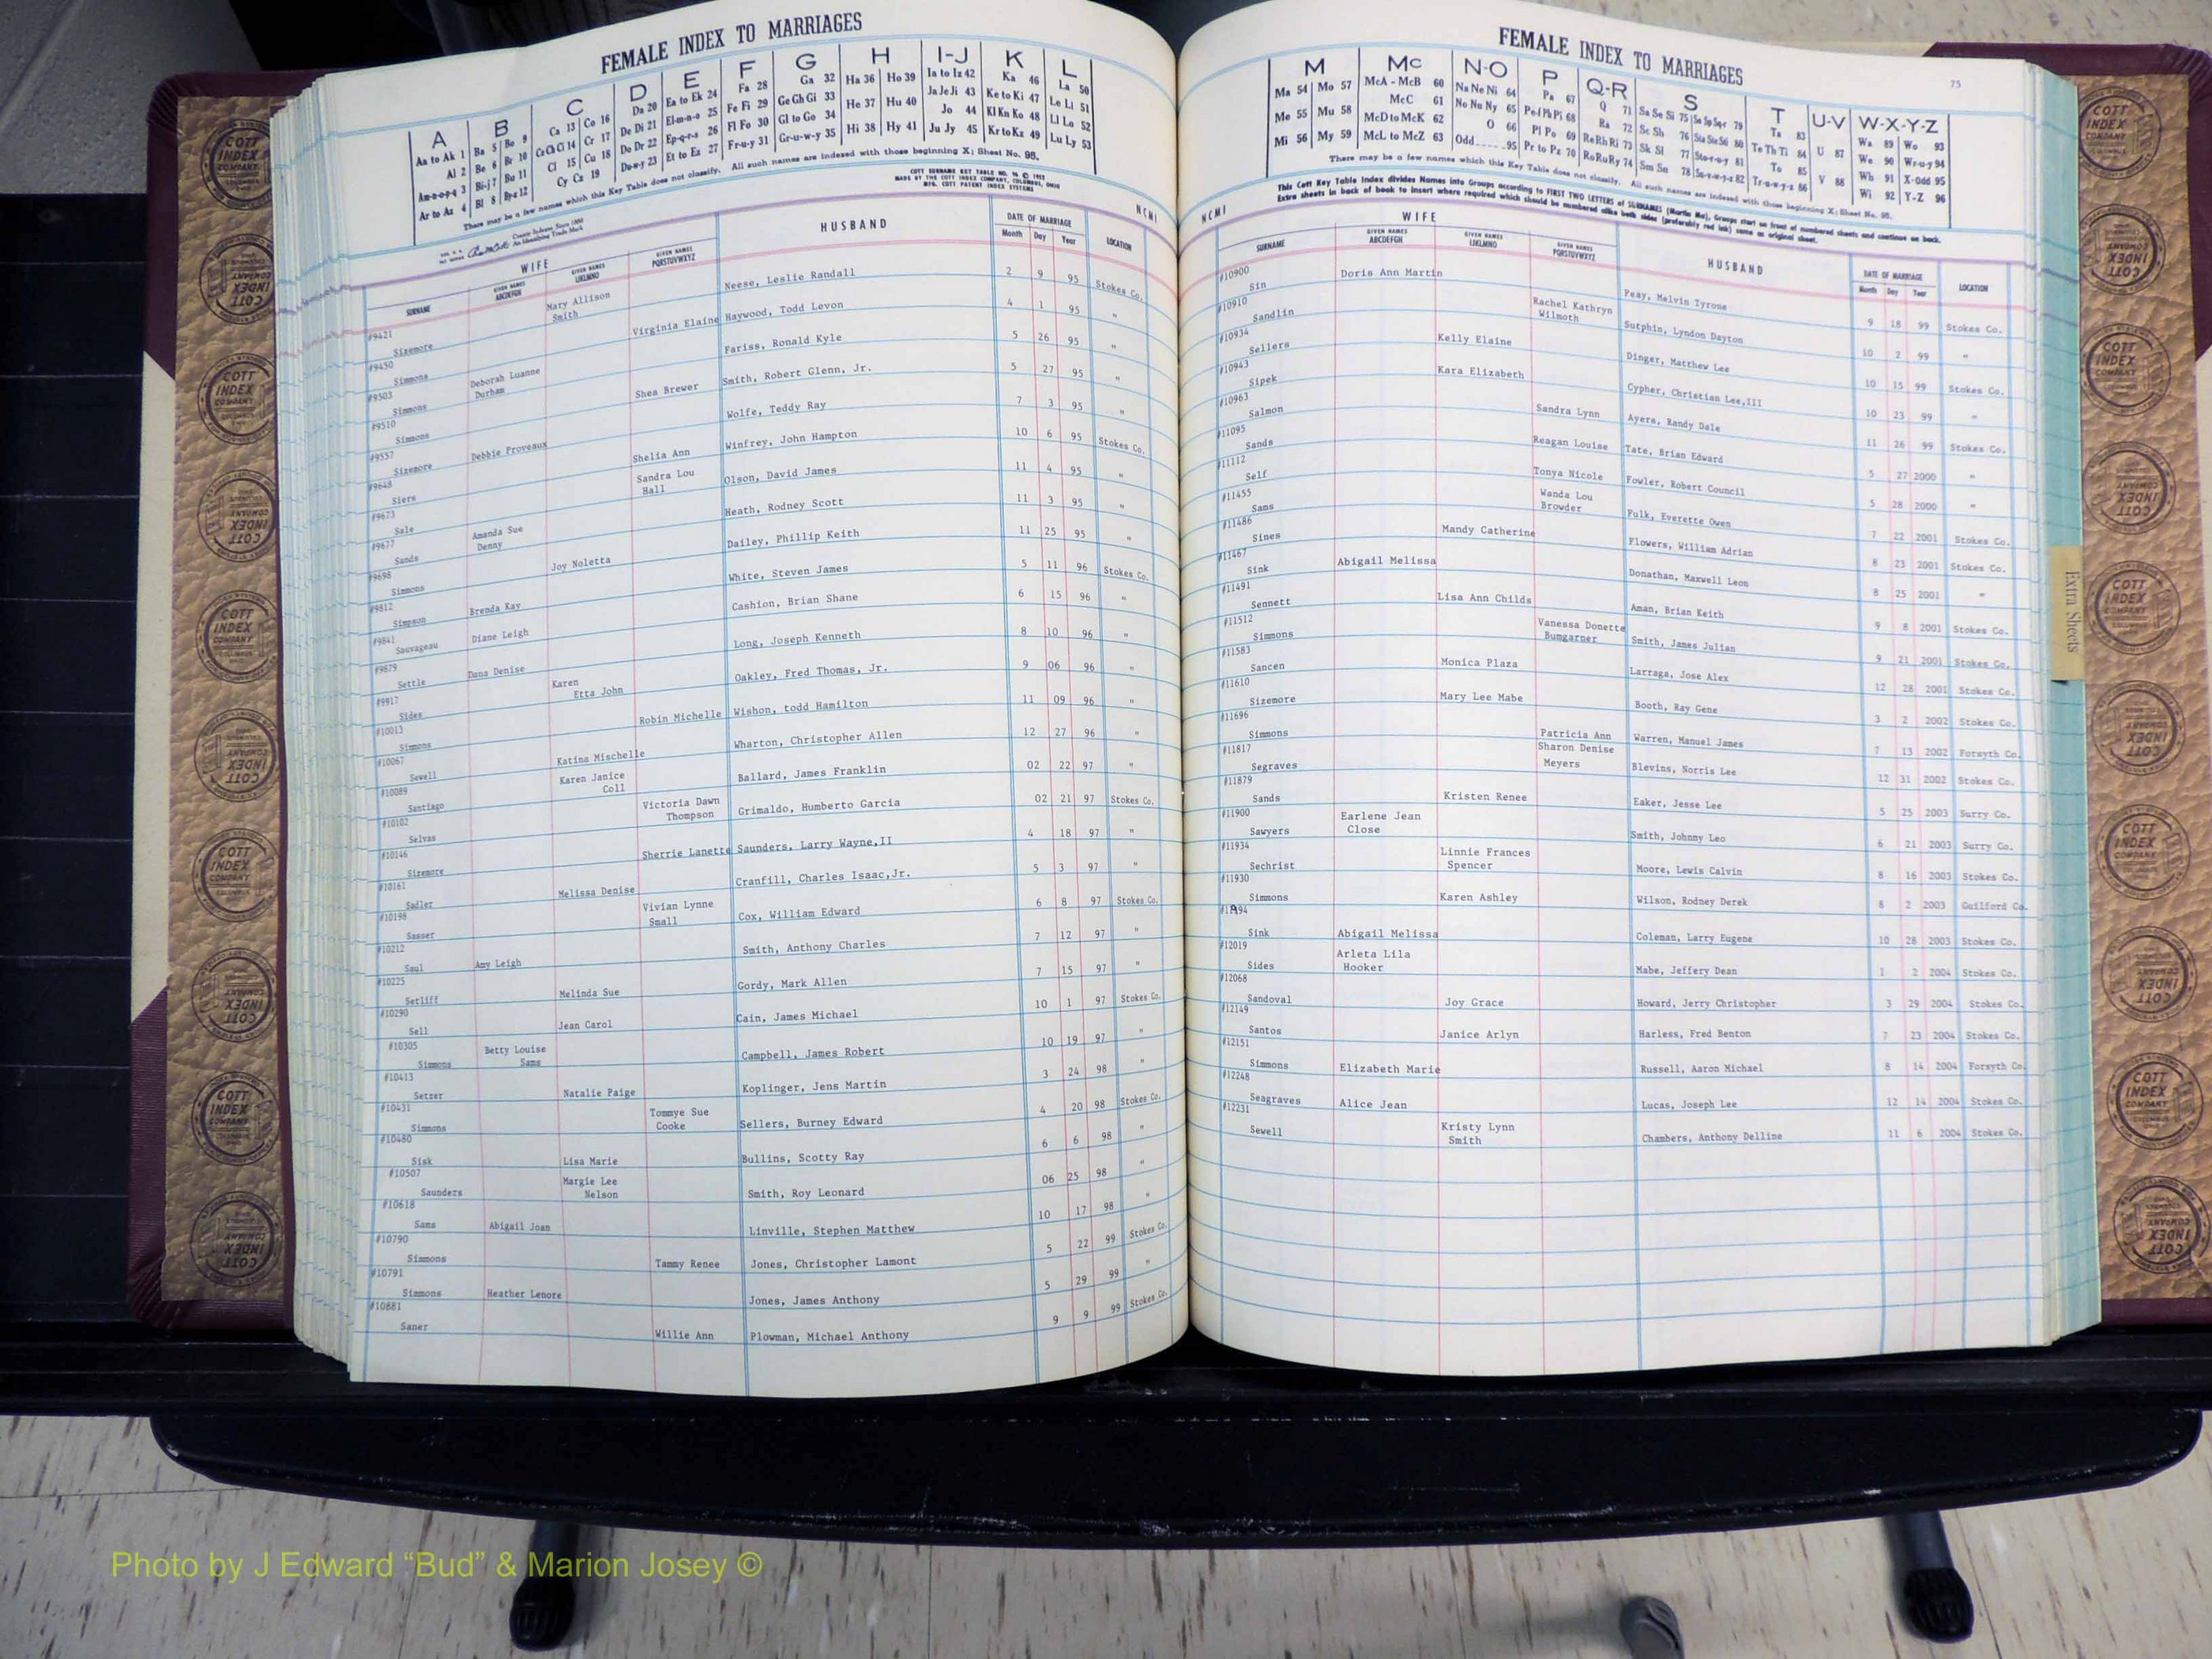 FEMALE INDEX TO MARRIAGES
A B C D E F G H I-J K L
Aa to Ak 1 Ba 5 Be 9 Ca 13 Co 16 Da 20 Ea to Ek 24 Fa 28 Ga 32 Ha 36 Ho 39 Ia to Iz 42 Ka 46 La 50
Al 2 Be 6 Br 10 Ce Ch Ci 14 Cr 17 De Di 21 El-m-n-o 25 Fe Fi 29 Ge Gh Gi 33 He 37 Hu 40 Ja Je Ji 43 Ke to Ki 47 Le Li 51
Am-n-o-p-q 3 Bi-j 7 Bu 11 Cl 15 Cu 18 Do Dr 22 Ep-q-r-s 26 Fl Fo 30 Gl to Go 34 Hi 38 Hy 41 Jo 44 Kl Kn Ko 48 Ll Lo 52
Ar to Az 4 Bl 8 By-z 12 Cy Cz 19 Du-w-y 23 Et to Ez 27 Fr-u-y 31 Gr-u-w-y 35 Ju Jy 45 Kr to Kz 49 Lu Ly 53
There may be a few names which this Key Table does not classify. All such names are indexed with those beginning X; Sheet No. 95.
NCMI
WIFE HUSBAND DATE OF MARRIAGE LOCATION
SURNAME GIVEN NAMES ABCDEFGH GIVEN NAMES IJKLMNO GIVEN NAMES PQRSTUVWXYZ Month Day Year
#9421 Sizemore Mary Allison Smith Neese, Leslie Randall 2 9 95 Stokes Co.
#9450 Simmons Virginia Elaine Haywood, Todd Levon 4 1 95 "
#9503 Simmons Deborah Luanne Durham Fariss, Ronald Kyle 5 26 95 "
#9510 Simmons Shea Brewer Smith, Robert Glenn, Jr. 5 27 95 "
#9557 Sizemore Debbie Proveaux Wolfe, Teddy Ray 7 3 95 "
#9648 Siers Shelia Ann Winfrey, John Hampton 10 6 95 Stokes Co.
#9673 Sale Sandra Lou Hall Olson, David James 11 4 95 "
#9677 Sands Amanda Sue Denny Heath, Rodney Scott 11 3 95 "
#9698 Simmons Joy Noletta Dailey, Phillip Keith 11 25 95 "
#9812 Simpson Brenda Kay White, Steven James 5 11 96 Stokes Co.
#9841 Sauvageau Diane Leigh Cashion, Brian Shane 6 15 96 "
#9879 Settle Dana Denise Long, Joseph Kenneth 8 10 96 "
#9917 Sides Karen Etta John Oakley, Fred Thomas, Jr. 9 06 96 "
#10013 Simmons Robin Michelle Wishon, todd Hamilton 11 09 96 "
#10067 Sewell Katina Mischelle Wharton, Christopher Allen 12 27 96 "
#10089 Santiago Karen Janice Coll Ballard, James Franklin 02 22 97 "
#10102 Selvas Victoria Dawn Thompson Grimaldo, Humberto Garcia 02 21 97 Stokes Co.
#10146 Sizemore Sherrie Lanette Saunders, Larry Wayne,II 4 18 97 "
#10161 Sadler Melissa Denise Cranfill, Charles Isaac,Jr. 5 3 97 "
#10198 Sasser Vivian Lynne Small Cox, William Edward 6 8 97 Stokes Co.
#10212 Saul Amy Leigh Smith, Anthony Charles 7 12 97 "
#10225 Setliff Melinda Sue Gordy, Mark Allen 7 15 97 "
#10290 Sell Jean Carol Cain, James Michael 10 1 97 Stokes Co.
#10305 Simmons Betty Louise Sams Campbell, James Robert 10 19 97 "
#10413 Setzer Natalie Paige Koplinger, Jens Martin 3 24 98 "
#10431 Simmons Tommye Sue Cooke Sellers, Burney Edward 4 20 98 Stokes Co.
#10480 Sisk Lisa Marie Bullins, Scotty Ray 6 6 98 "
#10507 Saunders Margie Lee Nelson Smith, Roy Leonard 06 25 98 "
#10618 Sams Abigail Joan Linville, Stephen Matthew 10 17 98 "
#10790 Simmons Tammy Renee Jones, Christopher Lamont 5 22 99 Stokes Co.
#10791 Simmons Heather Lenore Jones, James Anthony 5 29 99 "
#10881 Saner Willie Ann Plowman, Michael Anthony 9 9 99 Stokes Co.
FEMALE INDEX TO MARRIAGES
75
M Mc N-O P Q-R S T U-V W-X-Y-Z
Ma 54 Mo 57 McA - McB 60 Na Ne Ni 64 Pa 67 Q 71 Sa Se Si 75 Sn Sp Sq-r 79 Ta 83 Wa 89 Wo 93
Me 55 Mu 58 McC 61 No Nu Ny 65 Pe-f Ph Pi 68 Ra 72 Sc Sh 76 Sta Ste S6 80 Te Th Ti 84 U 87 We 90 Wr-u-y 94
Mi 56 My 59 McD to McK 62 O 66 Pl Po 69 Re Rh Ri 73 Sk Sl 77 Sto-r-u-y 81 To 85 Wh 91 X-Odd 95
McL to McZ 63 Odd 95 Pr to Pz 70 Ro Ru Ry 74 Sm Sn 78 Su-v-w-y-z 82 Tr-u-w-y-z 86 V 88 Wi 92 Y-Z 96
There may be a few names which this Key Table does not classify. All such names are indexed with those beginning X; Sheet No. 95.
This Cott Key Table Index divides Names into Groups according to FIRST TWO LETTERS of SURNAMES (Martin Ma), Groups start on front of numbered sheets and continue on back.
Extra sheets in back of book to insert where required which should be numbered alike both sides (preferably red ink) same as original sheet.
NCMI
WIFE HUSBAND DATE OF MARRIAGE LOCATION
SURNAME GIVEN NAMES ABCDEFGH GIVEN NAMES IJKLMNO GIVEN NAMES PQRSTUVWXYZ Month Day Year
#10900 Sin Doris Ann Martin Peay, Melvin Tyrone 9 18 99 Stokes Co.
#10910 Sandlin Rachel Kathryn Wilmoth Sutphin, Lyndon Dayton 10 2 99 "
#10934 Sellers Kelly Elaine Dinger, Matthew Lee 10 15 99 Stokes Co.
#10943 Sipek Kara Elizabeth Cypher, Christian Lee,III 10 23 99 "
#10963 Salmon Sandra Lynn Ayers, Randy Dale 11 26 99 Stokes Co.
#11095 Sands Reagan Louise Tate, Brian Edward 5 27 2000 "
#11112 Self Tonya Nicole Fowler, Robert Council 5 28 2000 "
#11455 Sams Wanda Lou Browder Fulk, Everette Owen 7 22 2001 Stokes Co.
#11486 Sines Mandy Catherine Flowers, William Adrian 8 23 2001 Stokes Co.
#11467 Sink Abigail Melissa Donathan, Maxwell Leon 8 25 2001 "
#11491 Sennett Lisa Ann Childs Aman, Brian Keith 9 8 2001 Stokes Co.
#11512 Simmons Vanessa Donette Bumgarner Smith, James Julian 9 21 2001 Stokes Co.
#11583 Sancen Monica Plaza Larraga, Jose Alex 12 28 2001 Stokes Co.
#11610 Sizemore Mary Lee Mabe Booth, Ray Gene 3 2 2002 Stokes Co.
#11696 Simmons Patricia Ann Warren, Manuel James 7 13 2002 Forsyth Co.
#11817 Segraves Sharon Denise Meyers Blevins, Norris Lee 12 31 2002 Stokes Co.
#11879 Sands Kristen Renee Eaker, Jesse Lee 5 25 2003 Surry Co.
#11900 Sawyers Earlene Jean Close Smith, Johnny Leo 6 21 2003 Surry Co.
#11934 Sechrist Linnie Frances Spencer Moore, Lewis Calvin 8 16 2003 Stokes Co.
#11930 Simmons Karen Ashley Wilson, Rodney Derek 8 2 2003 Guilford Co.
Sink Abigail Melissa Coleman, Larry Eugene 10 28 2003 Stokes Co.
#12019 Sides Arleta Lila Hooker Mabe, Jeffery Dean 1 2 2004 Stokes Co.
#12068 Sandoval Joy Grace Howard, Jerry Christopher 3 29 2004 Stokes Co.
#12149 Santos Janice Arlyn Harless, Fred Benton 7 23 2004 Stokes Co.
#12151 Simmons Elizabeth Marie Russell, Aaron Michael 8 14 2004 Forsyth Co.
#12248 Seagraves Alice Jean Lucas, Joseph Lee 12 14 2004 Stokes Co.
#12231 Sewell Kristy Lynn Smith Chambers, Anthony Delline 11 6 2004 Stokes Co.
Extra Sheets
COTT INDEX COMPANY
Photo by J Edward “Bud” & Marion Josey ©